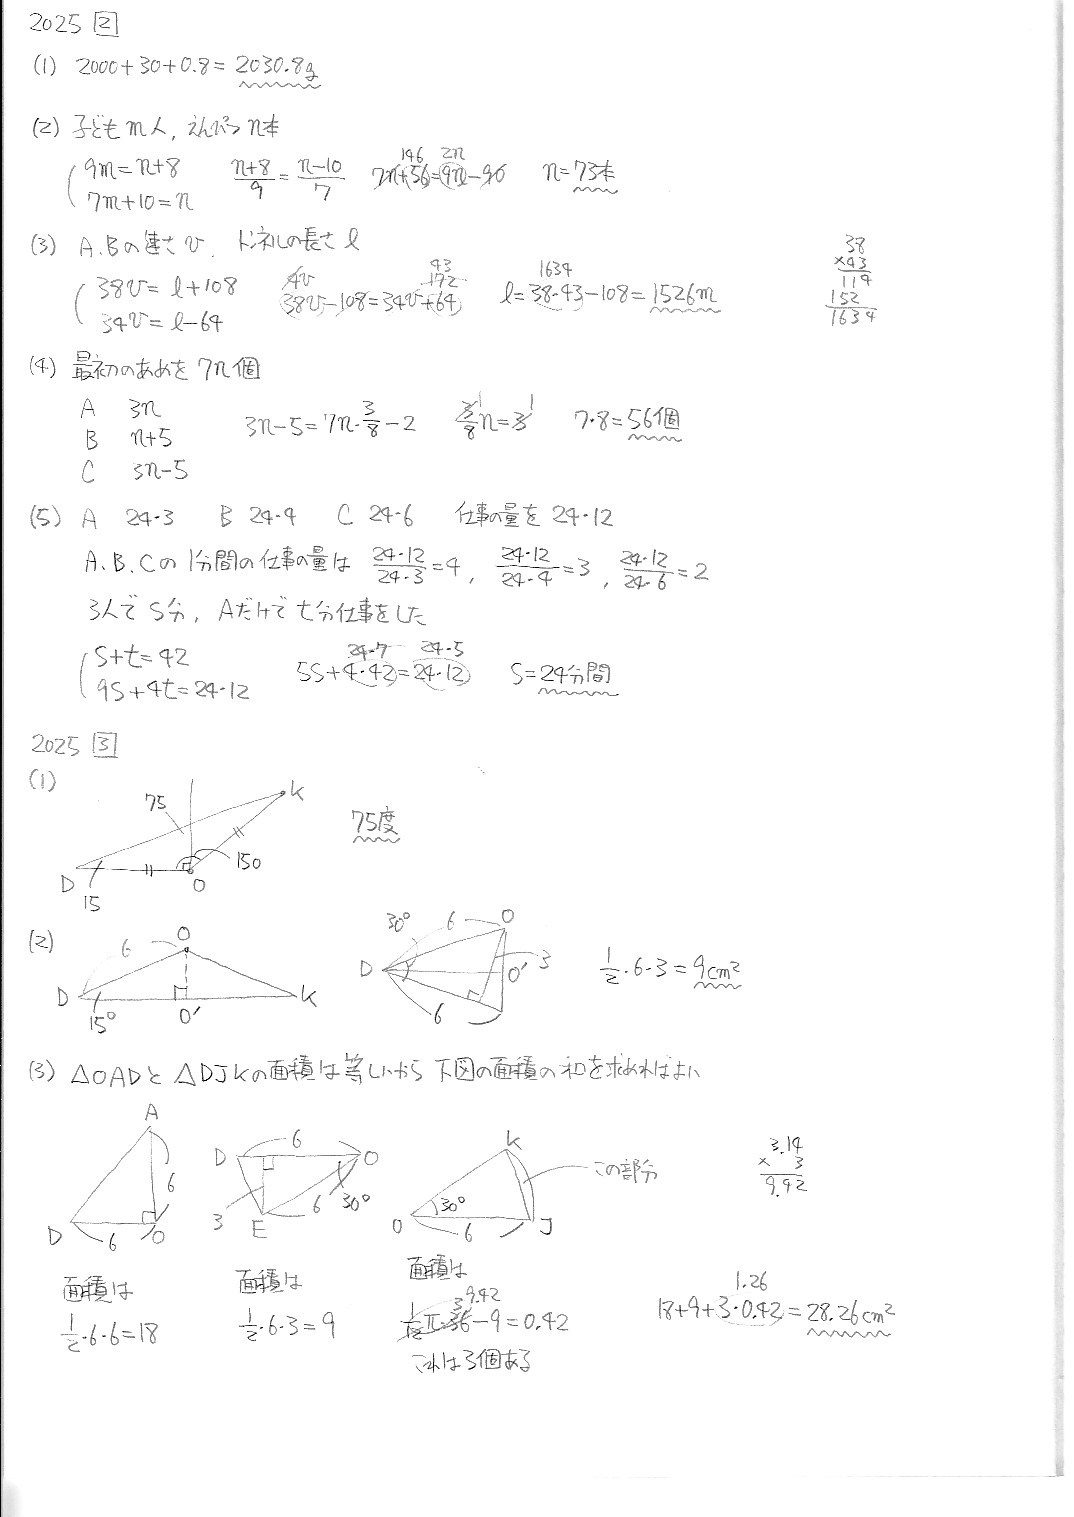 2025 [2]
(1) 2000+30+0.8= 2030.8g
(2) 子どもm人, えんぴつn本
9m=n+8
7m+10=n
n+8/9 = n-10/7
146 2n
7n+56=9n-90
n=73本
(3) A.Bの速さv. トンネルの長さl
38v= l+108
34v= l-64
4v 43 172
38v-108=34v+64
1634
l=38・43-108=1526m
38
×43
114
152
1634
(4) 最初のあめを7n個
A 3n
B n+5
C 3n-5
3n-5=7n・3/8-2
3/8n=3 1 1
7・8=56個
(5) A 24・3 B 24・4 C 24・6 仕事の量を24・12
A.B.Cの1分間の仕事の量は 24・12/24・3=4, 24・12/24・4=3, 24・12/24・6=2
3人でS分, Aだけでt分仕事をした
S+t=42
9S+4t=24・12
24・7 24・5
5S+4・42=24・12
S=24分間
2025 [3]
(1)
75
K
150
D
15
O
75度
(2)
6
O
D
15°
O'
K
30°
6
O
D
O'
3
6
1/2・6・3=9cm²
(3) △OADと△DJKの面積は等しいから 下図の面積の和を求めればよい
A
6
D
6
O
面積は
1/2・6・6=18
D
6
O
3
E
6
30°
面積は
1/2・6・3=9
K
この部分
O
30°
6
J
面積は
3 9.42
1/12π・36-9=0.42
これは3個ある
3.14
× 3
9.42
1.26
18+9+3・0.42=28.26cm²